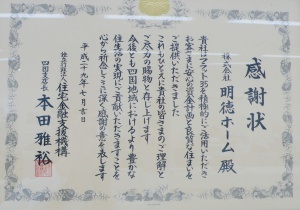 感謝状
株式会社
明徳ホーム 殿
貴社はフラット35を積極的にご活用いただき
お客さまに安心の資金計画と良質な住まいを
ご提供いただきました
これもひとえに貴社の皆さまのご理解と
ご尽力の賜物と存じ上げます
今後とも四国地域におけるより豊かな
住生活の実現にご貢献いただきますことを
心から祈念しここに深く感謝の意を表します
平成二十九年七月吉日
独立行政法人 住宅金融支援機構
四国支店長 本田雅裕